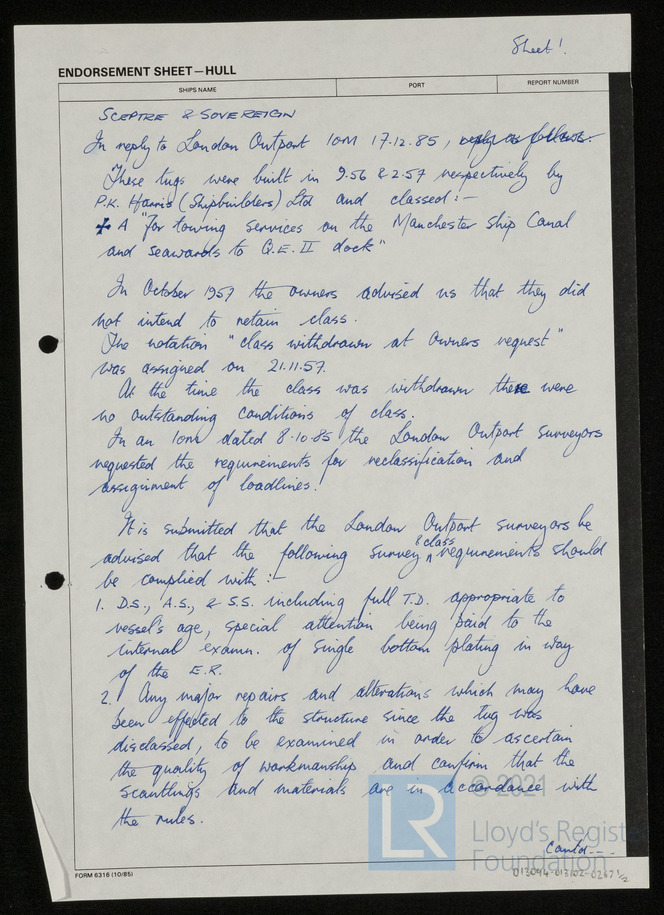 Sheet 1.
ENDORSEMENT SHEET—HULL
SHIPS NAME PORT REPORT NUMBER
SCEPTRE & SOVEREIGN
In reply to London Outport IOM 17.12.85, reply as follows.
These tugs were built in 9.56 & 2.57 respectively by
P.K. Harris (Shipbuilders) Ltd and classed:-
✠ A "For towing services on the Manchester Ship Canal
and seawards to Q.E. II dock"
In October 1957 the owners advised us that they did
not intend to retain class.
The notation "class withdrawn at owners request"
was assigned on 21.11.57.
At the time the class was withdrawn there were
no outstanding conditions of class.
In an IOM dated 8.10.85 the London Outport surveyors
requested the requirements for reclassification and
assignment of loadlines.
It is submitted that the London Outport surveyors be
& class
advised that the following survey requirements should
be complied with:-
1. D.S., A.S., & S.S. including full T.D. appropriate to
vessel's age, special attention being paid to the
internal examn. of single bottom plating in way
of the E.R.
2. Any major repairs and alterations which may have
been effected to the structure since the tug was
disclassed, to be examined in order to ascertain
the quality of workmanship and confirm that the
scantlings and materials are in accordance with
the rules.
Contd---
FORM 6316 (10/85)
LR
© 2021
Lloyd's Registe
Foundation
013094-013102-0247 1/2